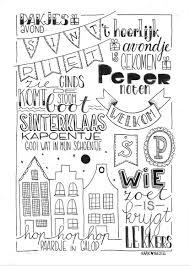 PAKJES
avond
't heerlijk
avondje
is
gekomen
SINT
PEPER
noten
zie GINDS
KOMT de
boot
WELKOM
SINTERKLAAS
KAPOENTJE
GOOI WAT IN MIJN SCHOENTJE
S P
WIE
zoet
is
krijgt
LEKKERS
hop hop hop
PAARDJE IN GALOP